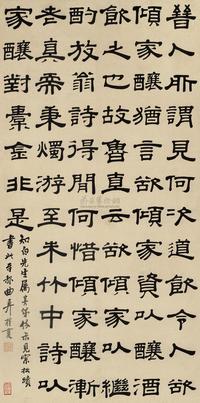 晉人所謂見何次道飲令人欲
傾家釀猶言欲傾家資以釀酒
飲之也故魯直云欲傾家以繼
酌放翁詩得閒何惜傾家釀漸
老真需秉燭游至朱行中詩以
家釀對橐金非是
知白先生属
書此 曲阜桂馥